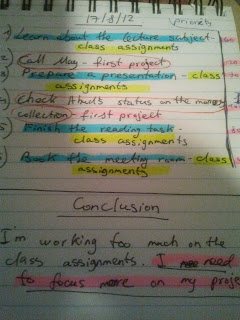 17/8/12 priority
1) Learn about the lecture subject-
class assignments
2) Call May - first project
3) Prepare a presentation - class
assignments
4) Check Ahud's status on the money
collection - first project
Finish the reading task -
class assignments
Book the meeting room - class
assignments
Conclusion
I'm working too much on the
class assignments. I need
to focus more on my proje